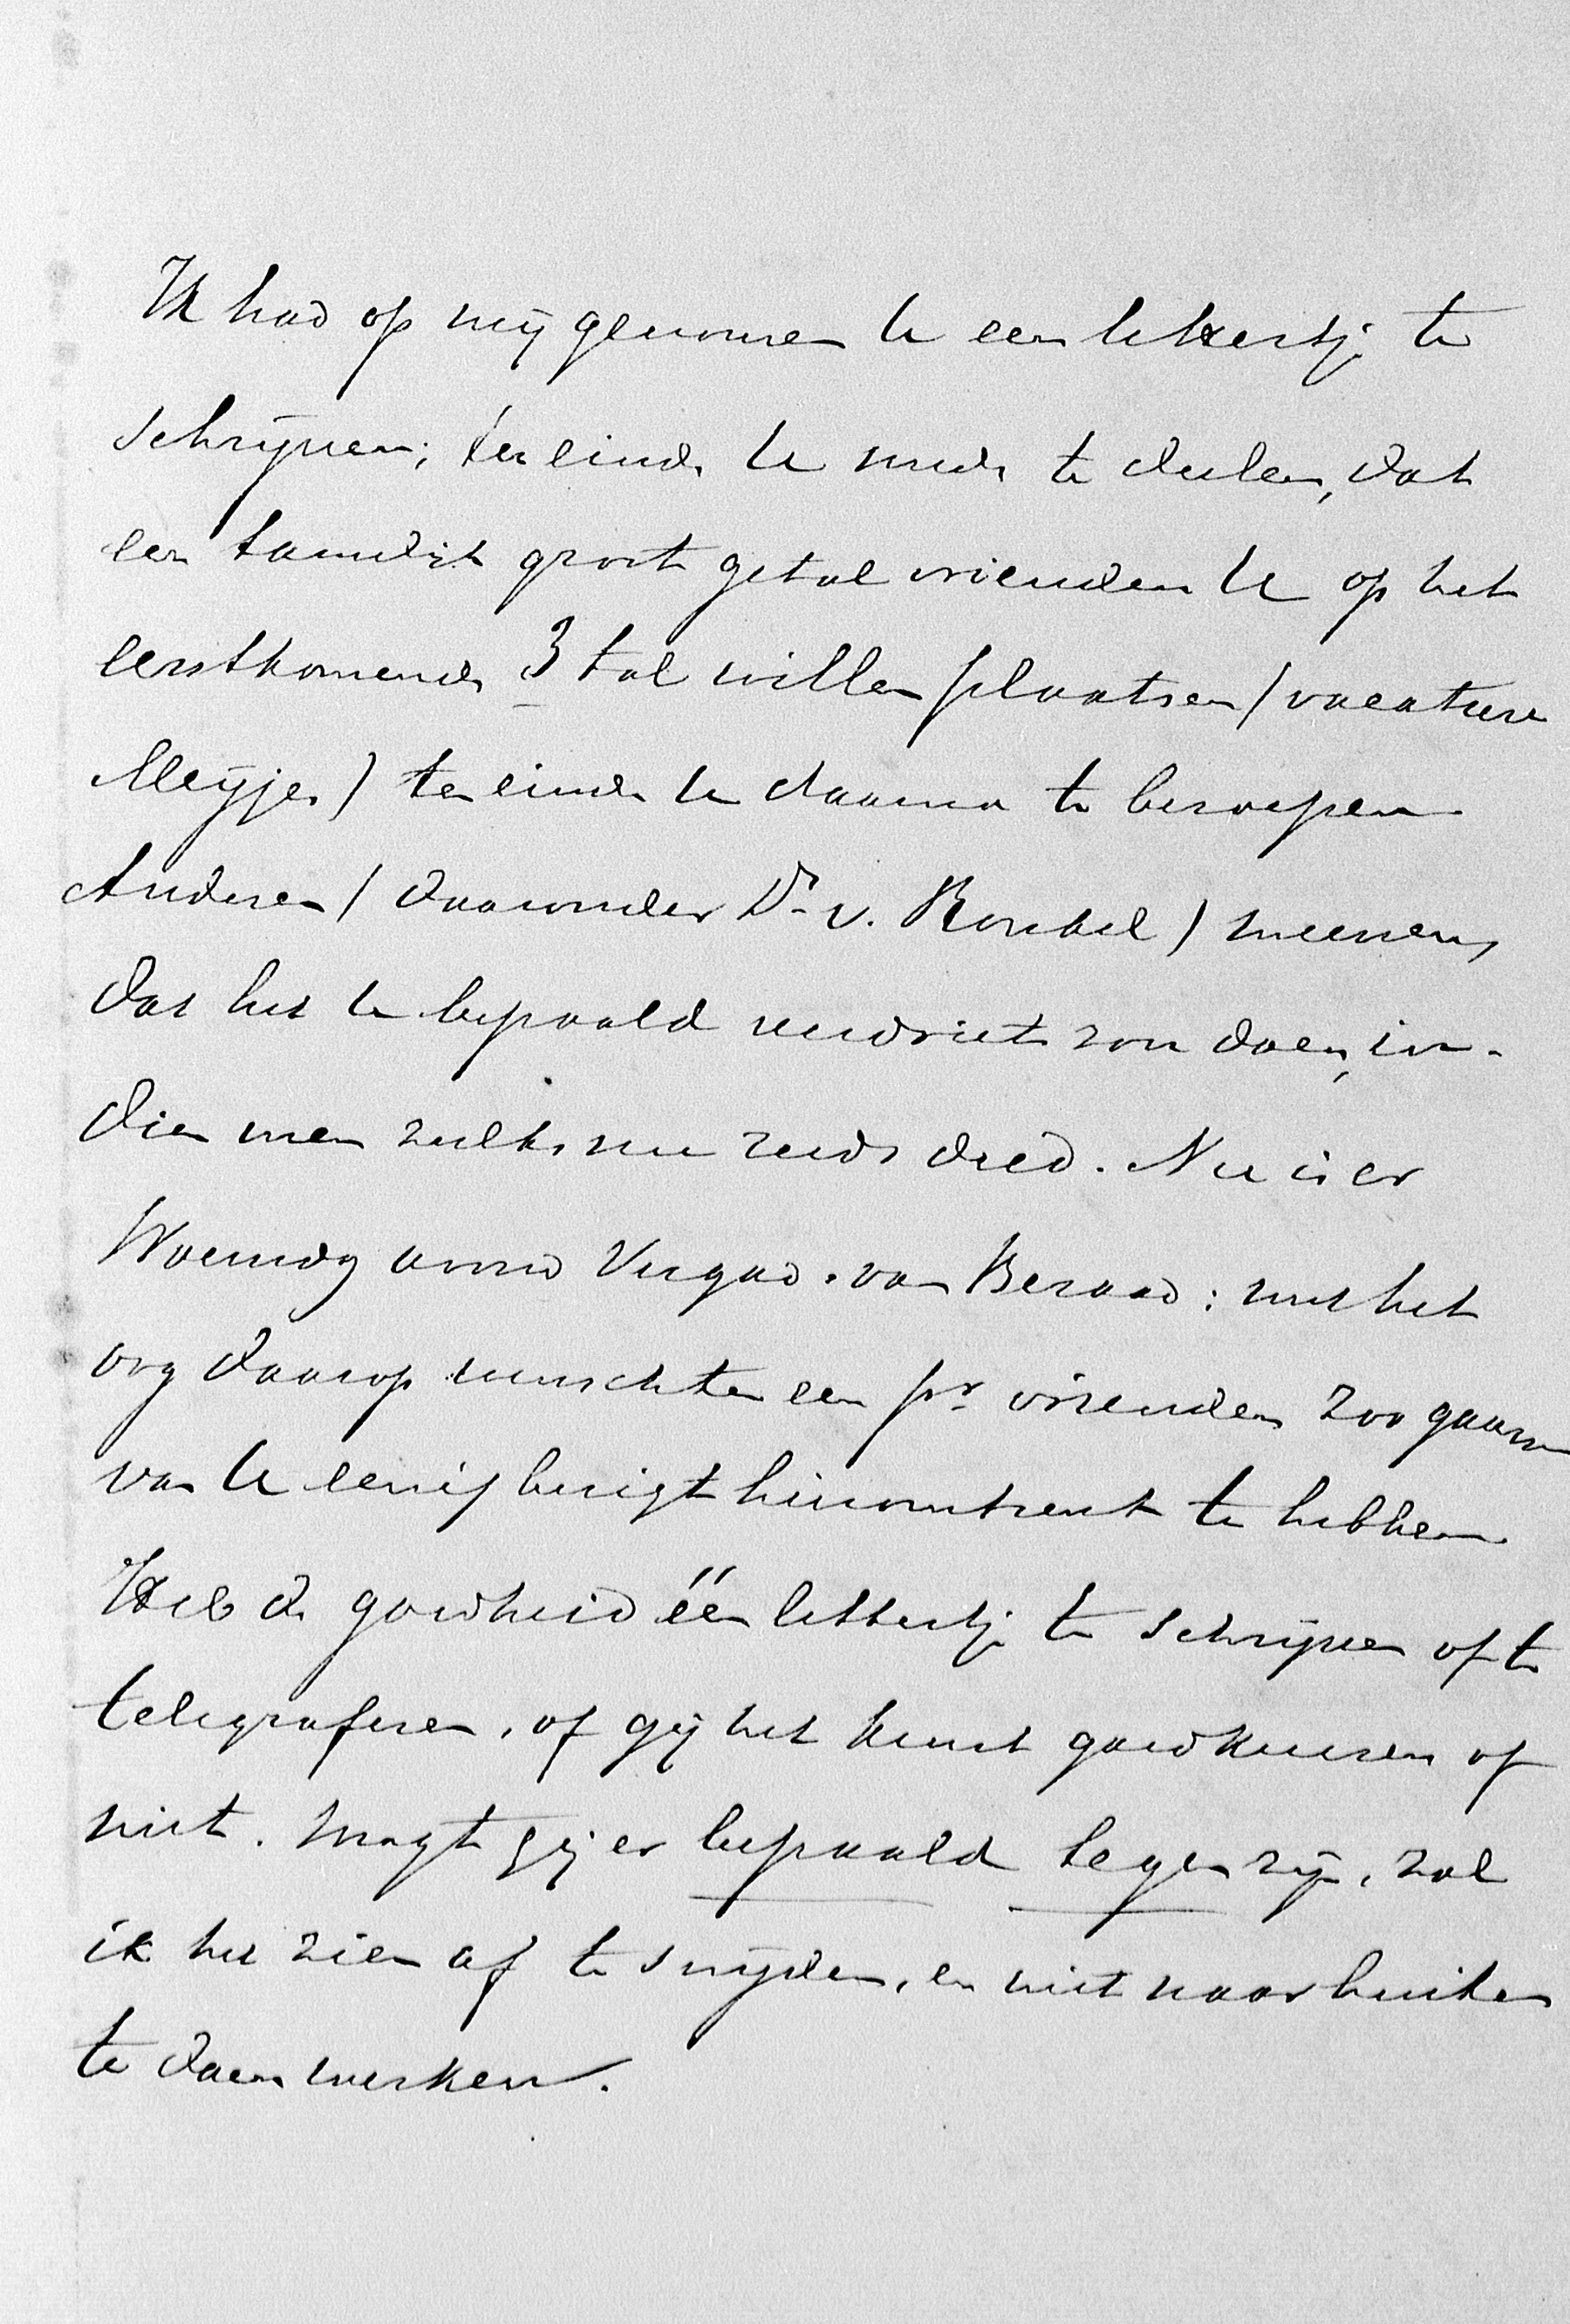 Ik had op mij genomen U een lettertje te
schrijven; ten einde U mede te deelen, dat
een tamelijk groot getal vrienden U op het
eerstkomende 3 tal willen plaatsen / vacature
Meyjes / ten einde U daarna te beroepen
Anderen / daaronder Dr. v. Ronkel / meenen,
dat het U bepaald verdriet zou doen, in-
dien men zulks nu reeds deed. Nu is er
Woensdg avond Vergad. van Beraad: met het
oog daarop wenschten een pr. vrienden zoo gaarne
van U eenig berigt hieromtrent te hebben
Heb de goedheid één lettertje te schrijven of te
telegraferen, of gij het kunt goedkeuren of
niet. Mogt gij er bepaald tegen zijn, zal
ik het zien af te snijden, en niet naar buiten
te doen werken.